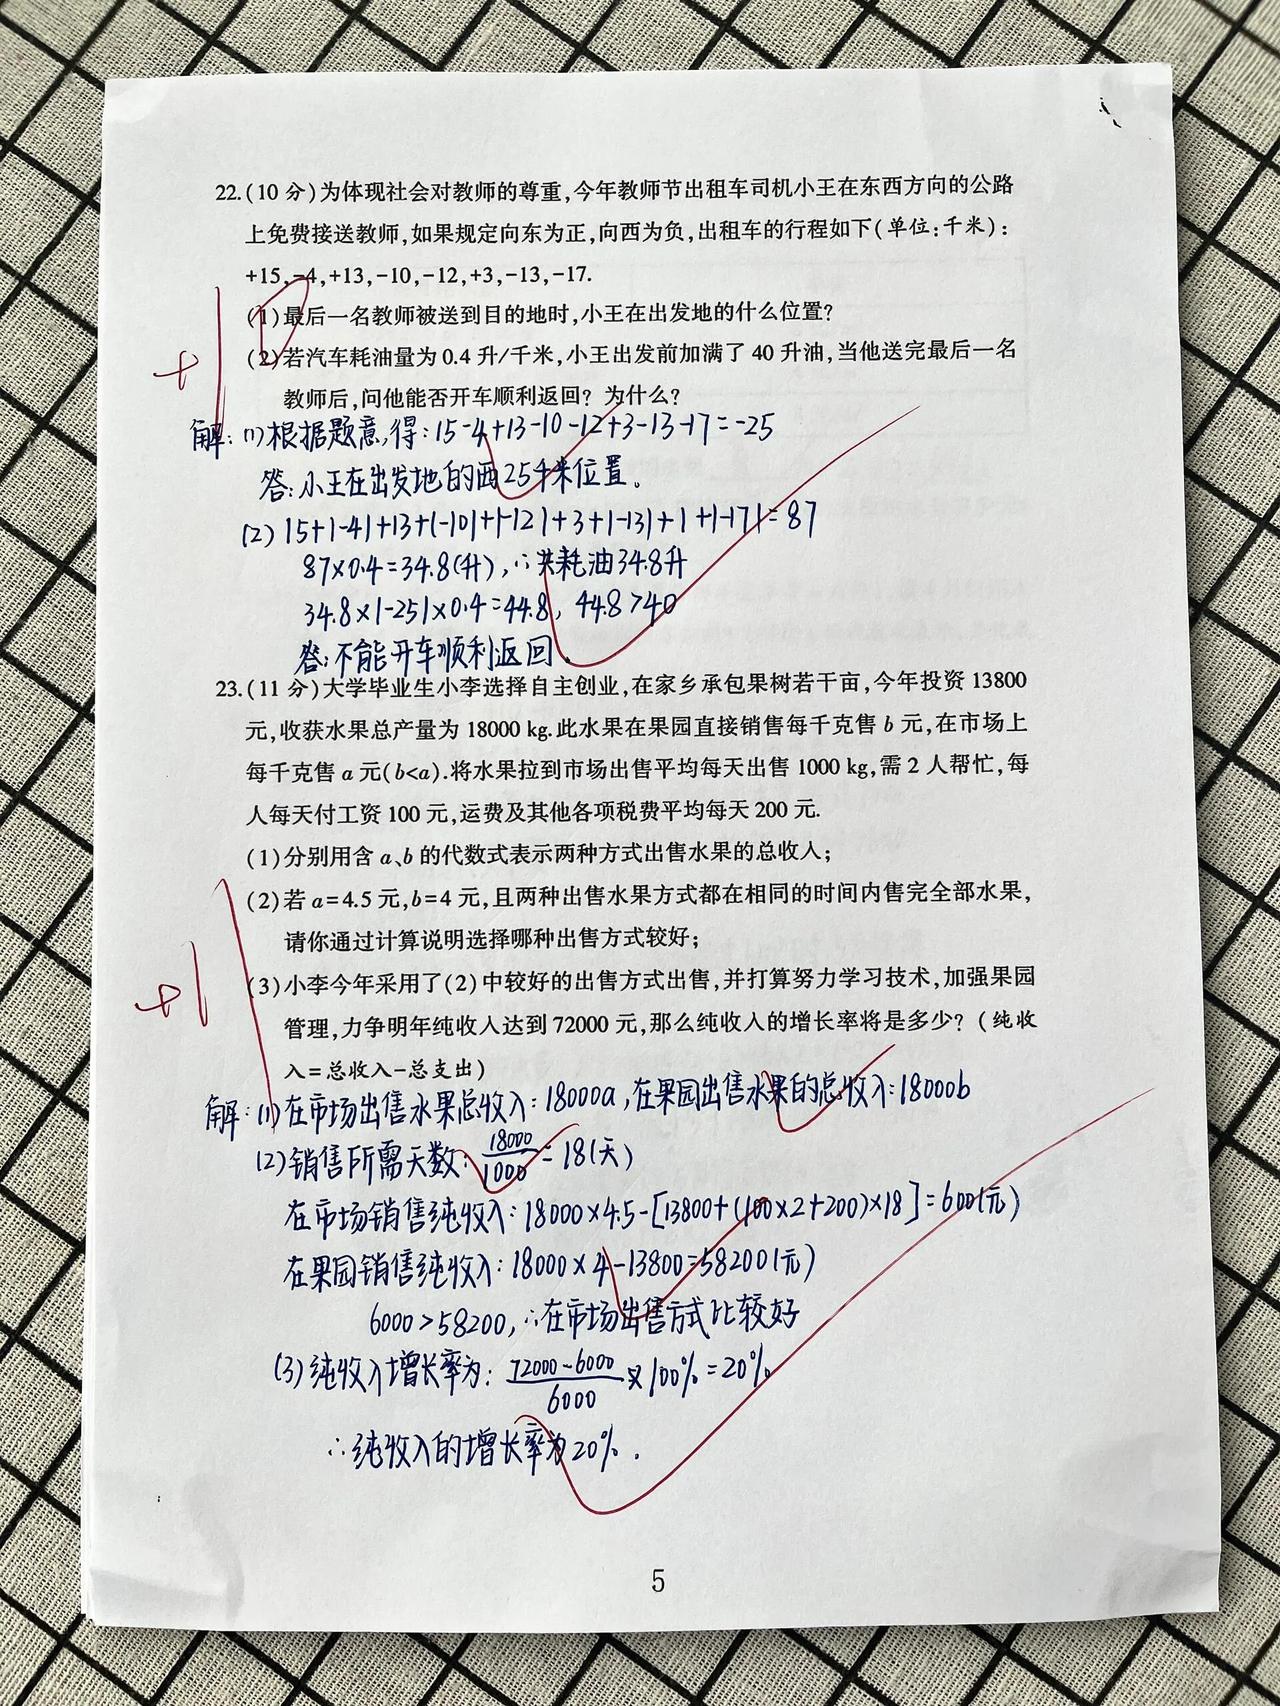 22.(10 分)为体现社会对教师的尊重,今年教师节出租车司机小王在东西方向的公路
上免费接送教师,如果规定向东为正,向西为负,出租车的行程如下(单位:千米):
+15,-4,+13,-10,-12,+3,-13,-17.
(1)最后一名教师被送到目的地时,小王在出发地的什么位置?
(2)若汽车耗油量为 0.4 升/千米,小王出发前加满了 40 升油,当他送完最后一名
教师后,问他能否开车顺利返回? 为什么?
+10
解:(1)根据题意,得:15-4+13-10-12+3-13-17=-25
答:小王在出发地的西25千米位置。
(2) 15+|-4|+13+|-10|+|-12|+3+|-13|+|+|-17|=87
87×0.4=34.8(升),∴共耗油34.8升
34.8×|-25|×0.4=44.8, 44.8>40
答:不能开车顺利返回.
23.(11 分)大学毕业生小李选择自主创业,在家乡承包果树若干亩,今年投资 13800
元,收获水果总产量为 18000 kg.此水果在果园直接销售每千克售 b 元,在市场上
每千克售 a 元(b<a).将水果拉到市场出售平均每天出售 1000 kg,需 2 人帮忙,每
人每天付工资 100 元,运费及其他各项税费平均每天 200 元.
(1)分别用含 a、b 的代数式表示两种方式出售水果的总收入;
(2)若 a=4.5 元,b=4 元,且两种出售水果方式都在相同的时间内售完全部水果,
请你通过计算说明选择哪种出售方式较好;
(3)小李今年采用了(2)中较好的出售方式出售,并打算努力学习技术,加强果园
管理,力争明年纯收入达到 72000 元,那么纯收入的增长率将是多少? (纯收
入=总收入-总支出)
+11
解:(1)在市场出售水果总收入:18000a,在果园出售水果的总收入:18000b
(2)销售所需天数:18000/1000=18(天)
在市场销售纯收入:18000×4.5-[13800+(100×2+200)×18]=600(元)
在果园销售纯收入:18000×4-13800=58200(元)
6000>58200,∴在市场出售方式比较好
(3)纯收入增长率为:72000-6000/6000×100%=20%
∴纯收入的增长率为20%.
5